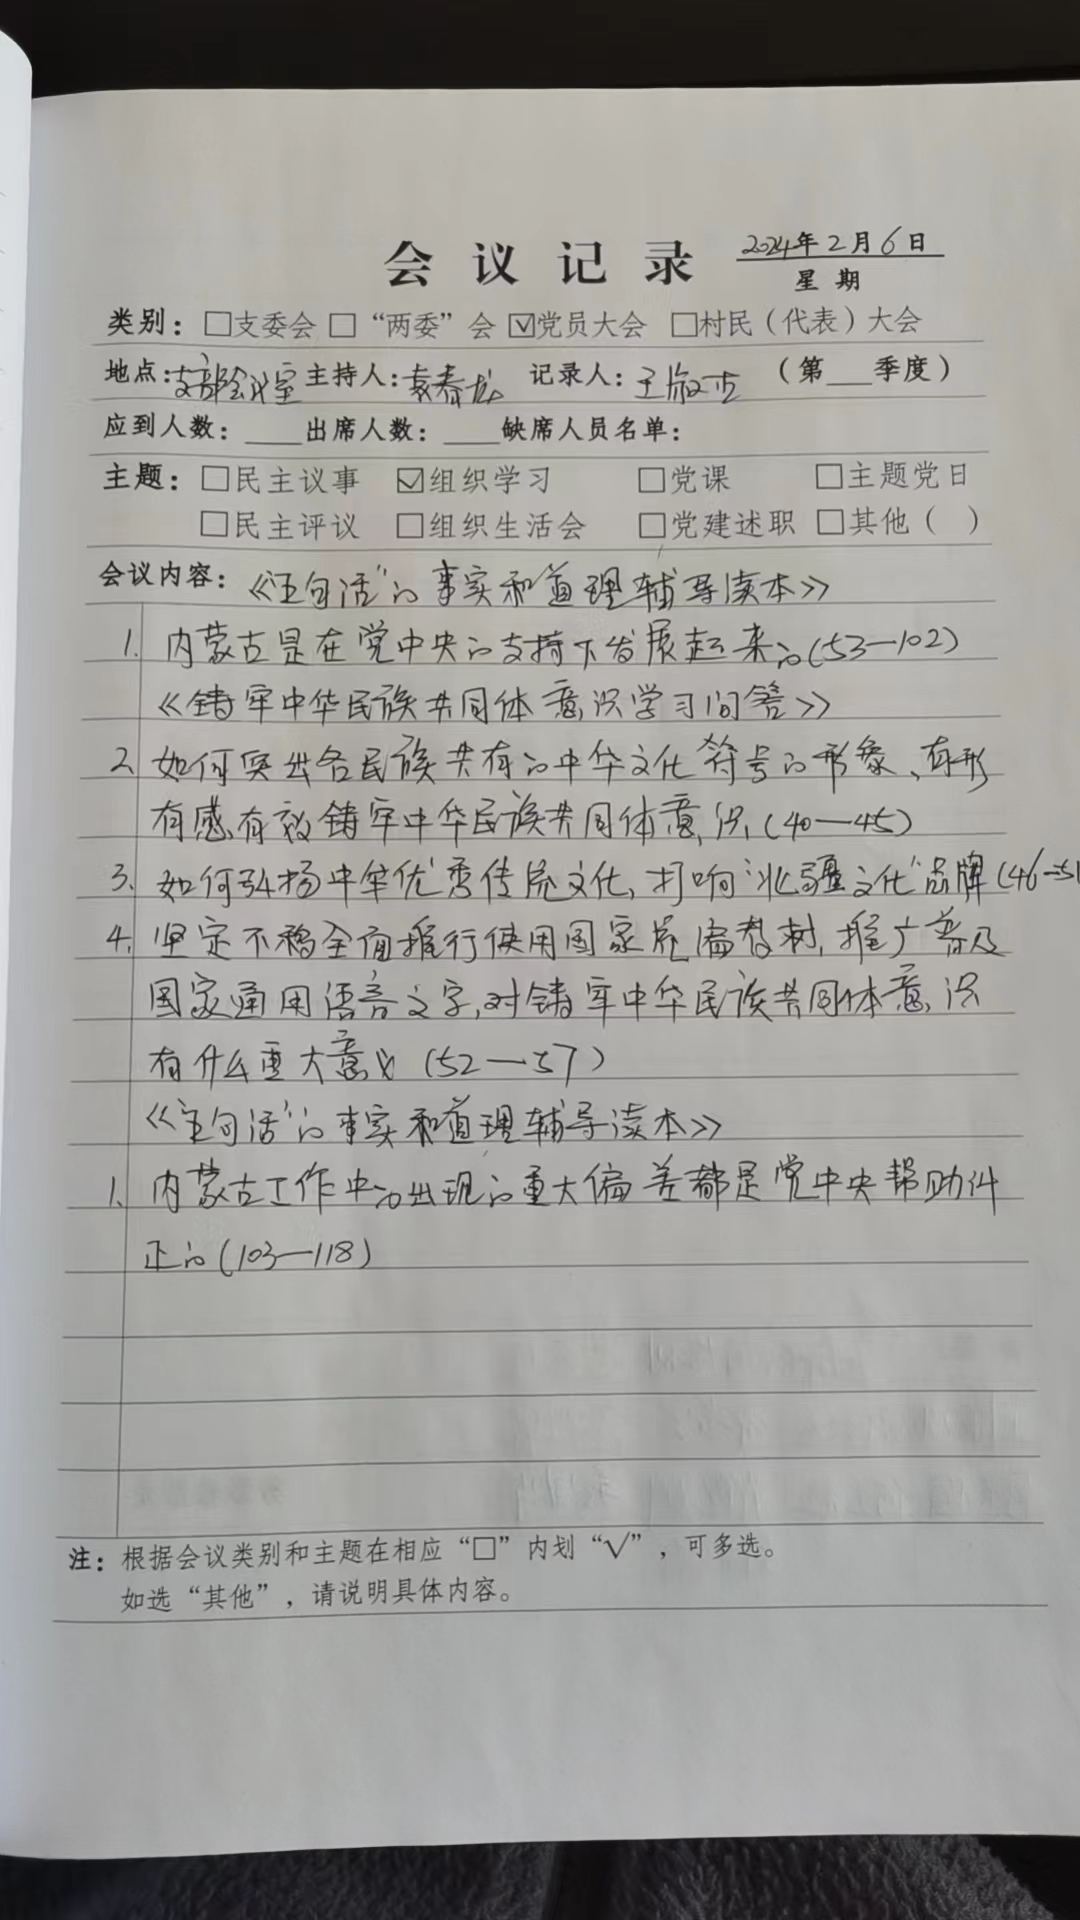 会议记录
2024年2月6日
星期
类别：□支委会 □“两委”会 ☑党员大会 □村民（代表）大会
地点：支部会议室 主持人：袁春龙 记录人：王淑 （第___季度）
应到人数：____出席人数：____缺席人员名单：
主题：□民主议事 ☑组织学习 □党课 □主题党日
□民主评议 □组织生活会 □党建述职 □其他（ ）
会议内容：《“五句话”的事实和道理辅导读本》
1. 内蒙古是在党中央的支持下发展起来的(53—102)
《铸牢中华民族共同体意识学习问答》
2. 如何突出各民族共有的中华文化符号的形象、有形
有感有效铸牢中华民族共同体意识，(40—45)
3. 如何弘扬中华优秀传统文化，打响“北疆文化”品牌(46—51
4. 坚定不移全面推行使用国家统编教材，推广普及
国家通用语言文字，对铸牢中华民族共同体意识
有什么重大意义(52—57)
《“五句话”的事实和道理辅导读本》
1. 内蒙古工作中的出现的重大偏差都是党中央帮助纠
正的(103—118)
注：根据会议类别和主题在相应“□”内划“√”，可多选。
如选“其他”，请说明具体内容。